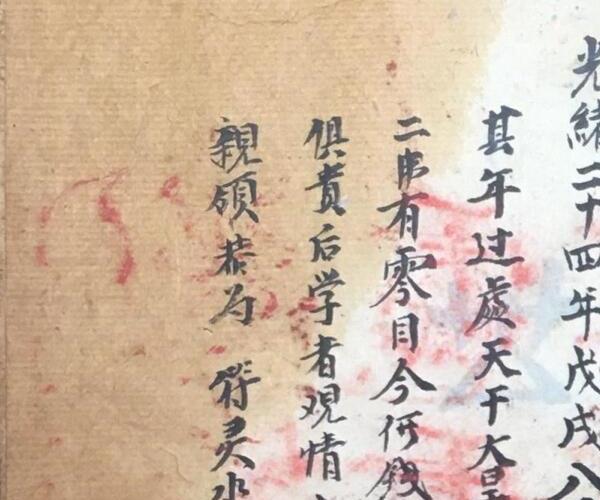 光緒二十四年戊戌八
其年过處天干大旱
二串有零目今何錢
俱貴后学者观情
親領恭为 符灵